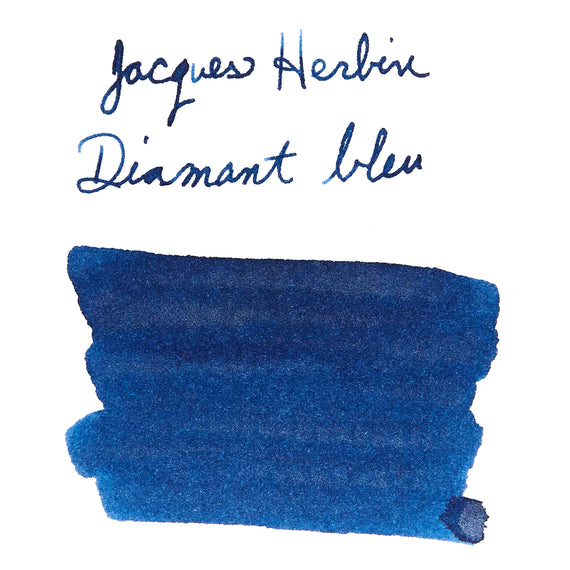 Jacques Herbin
Diamant bleu